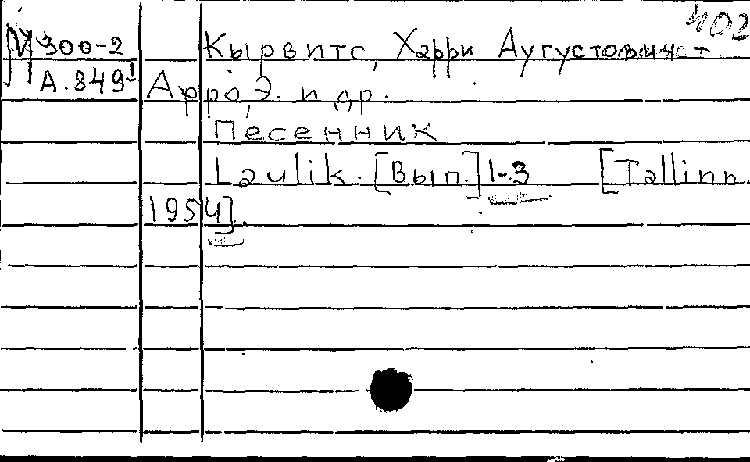 402
М 300-2 Кырвитс, Харри Аугустович
А.849¹ Арро, Э. и др.
Песенник
Laulik. [Вып.] 1-3 [Tallinn.
1954].